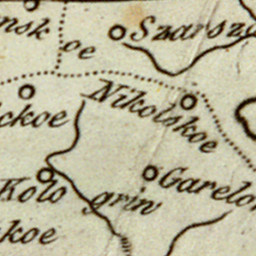 nsk
oe
Szarsz
Nikolskoe
ckoe
Kolo
grin
Garelo
koe